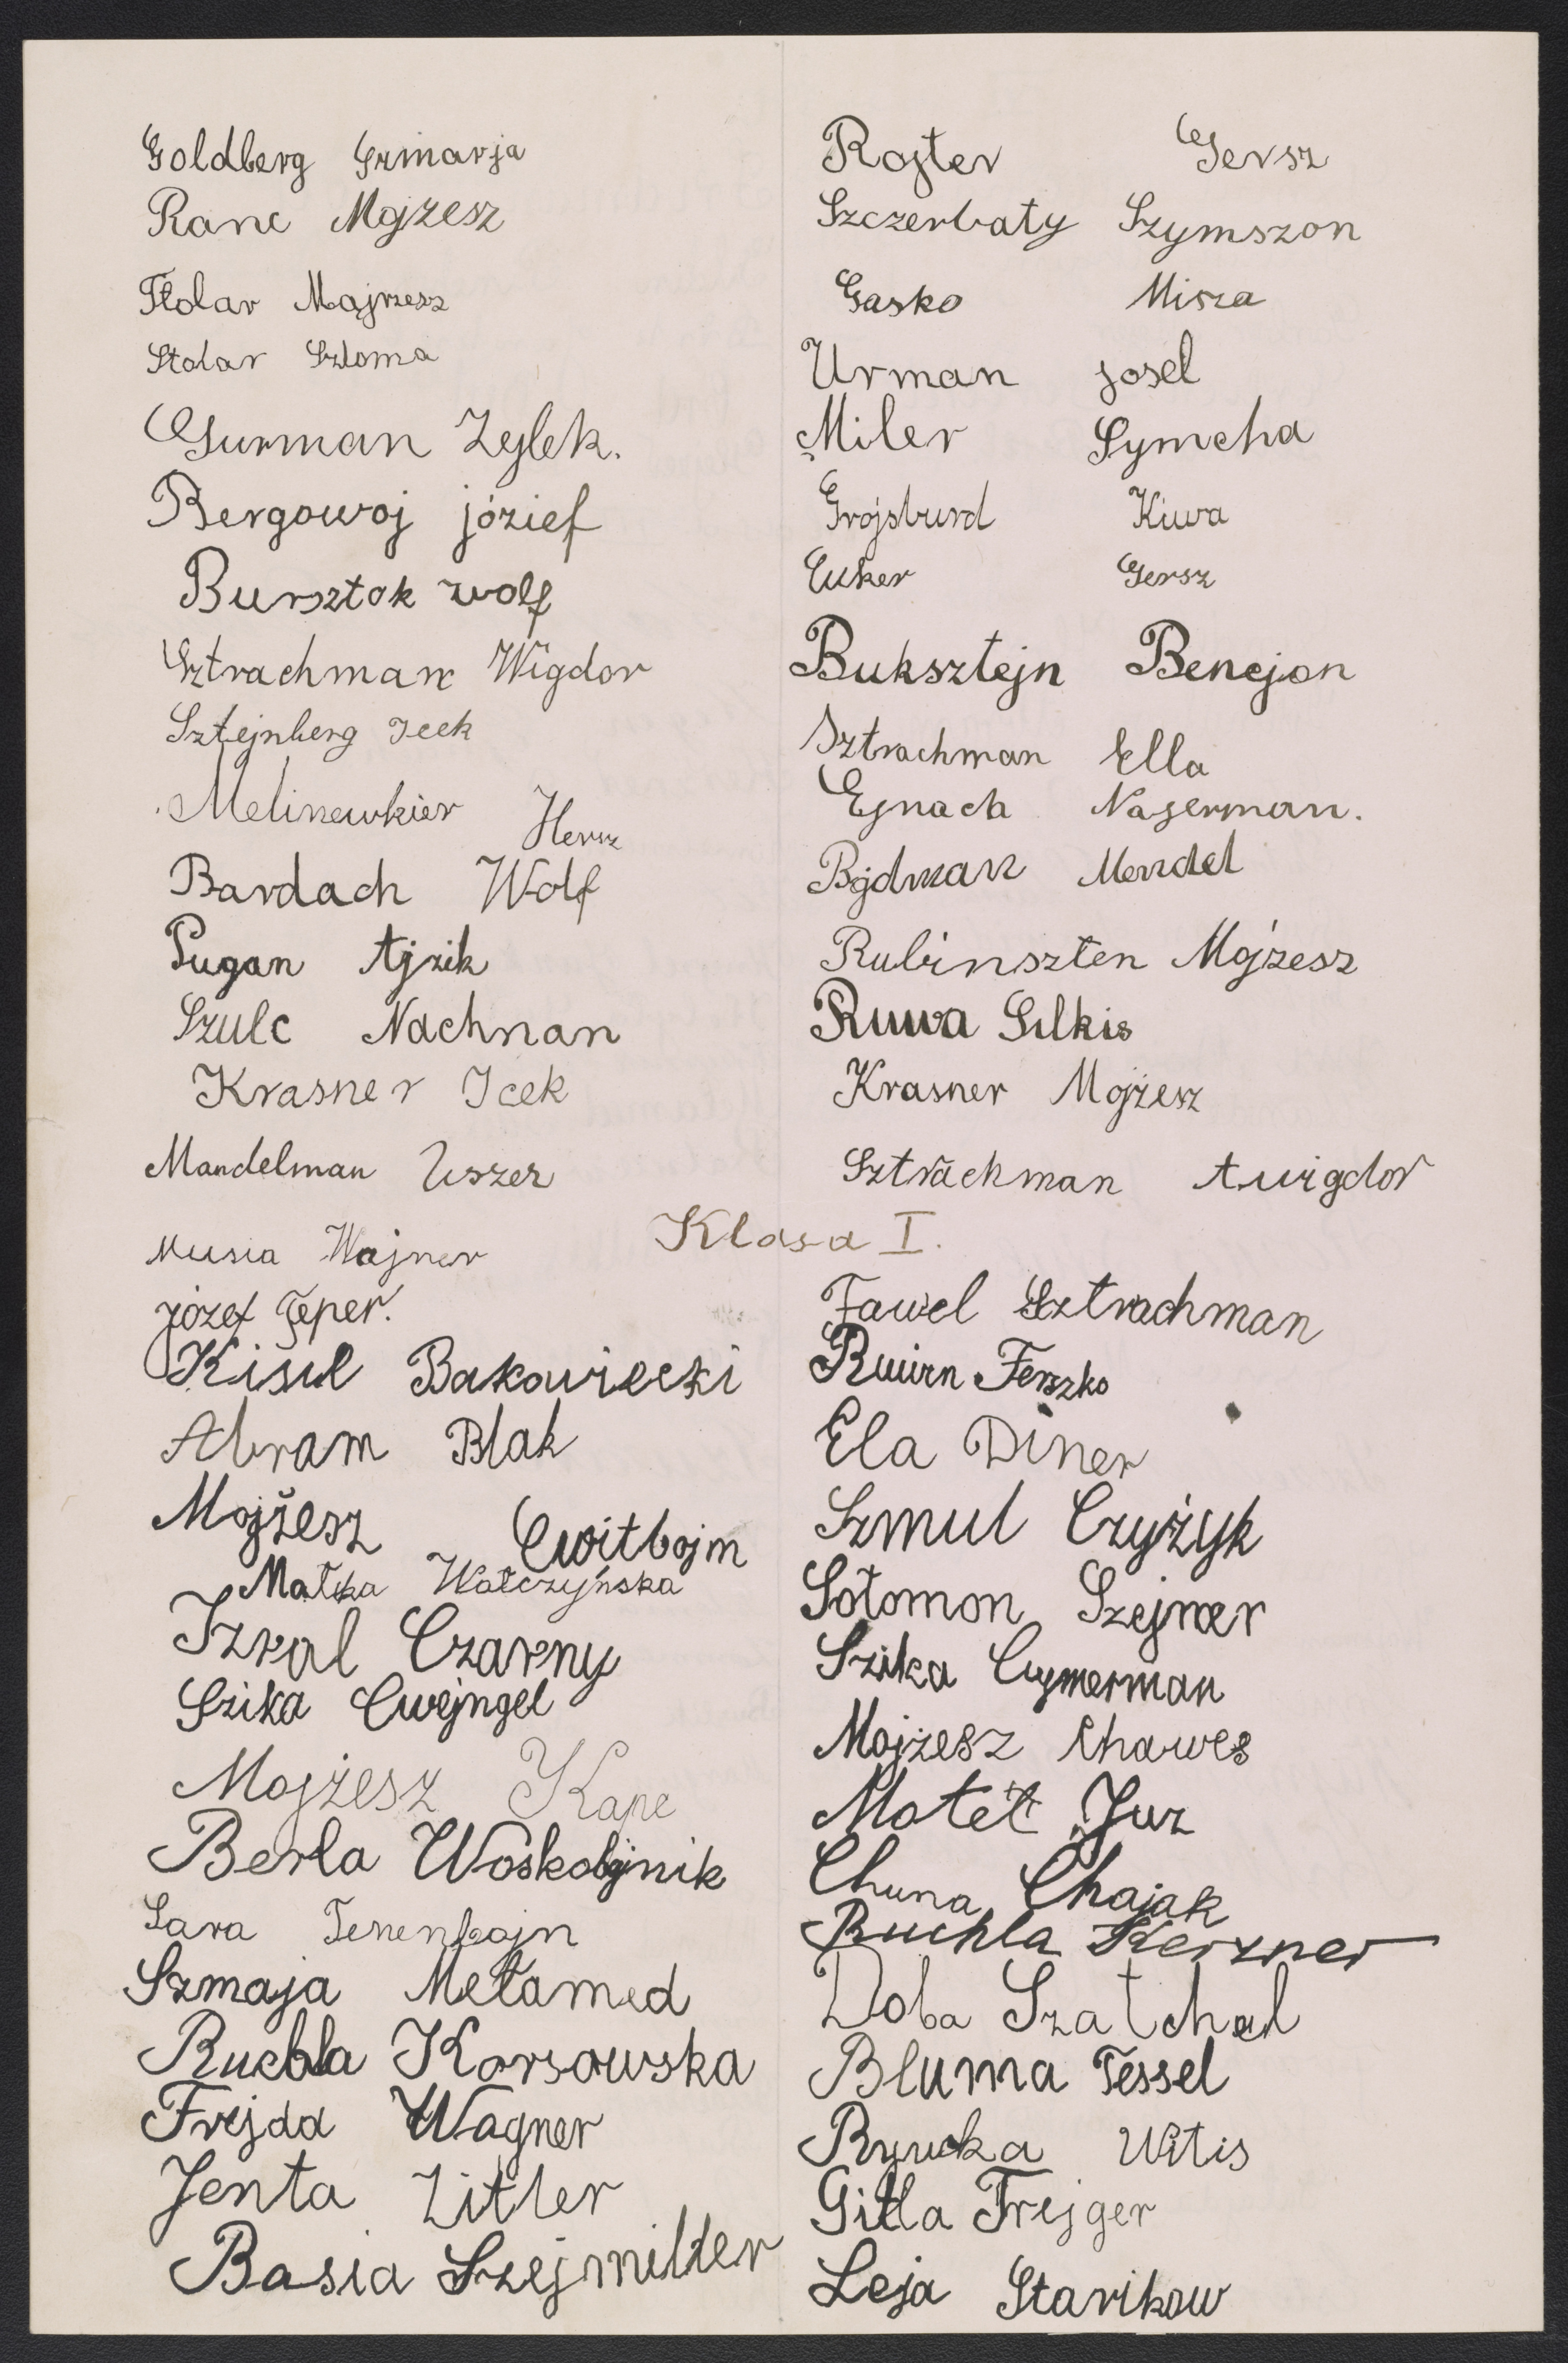 Goldberg Szmarja
Ranc Mojżesz
Stolar Majrzesz
Stolar Szloma
Gurman Zejlek.
Bergowoj józief
Bursztok wolf
Sztrachman Wigdor
Sztejnberg Icek
Melinewkier Hersz
Bardach Wolf
Pugan Ajzik
Szulc Nachman
Krasner Icek
Mandelman Uszer
Rojter Gersz
Szczerbaty Szymszon
Gasko Misza
Urman josel
Miler Symcha
Grojsburd Kiwa
Cuker Gersz
Buksztejn Benejon
Sztrachman Ella
Ejnach Najerman.
Bojdman Mendel
Rubinszten Mojżesz
Ruwa Silkis
Krasner Mojżesz
Sztrachman Awigdor
Klasa I.
Musia Wajner
józef Teper.
Kisil Bakowiecki
Abram Blak
Mojżesz Cwitbojm
Matka Watczyńska
Izral Czarny
Szika Cwejngel
Mojżesz Kape
Berla Woskobojnik
Sara Tenenbojn
Szmaja Metamed
Ruchla Korsowska
Frejda Wagner
Jenta Zitler
Basia Szejmilder
Fawel Sztrachman
Ruwin Ferszko
Ela Diner
Szmul Czyżyk
Sotomon Szejner
Szika Cymerman
Mojżesz Chawes
Motet Jur
Chuna Chajak
Ruchla Kerzner
Doba Szatchal
Bluma Tessel
Rywka Witis
Gitla Frejger
Leja Starikow